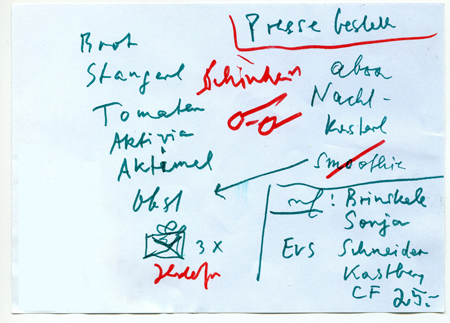 Presse bestell
Brot
Stangerl
Schinken
Tomaten
Aktivia
Aktimel
Obst
3x
abra
Nachtkasterl
Smoothie
mf: Brinskele
Sonja
EVS Schneider
Kastberg
CF 25.-